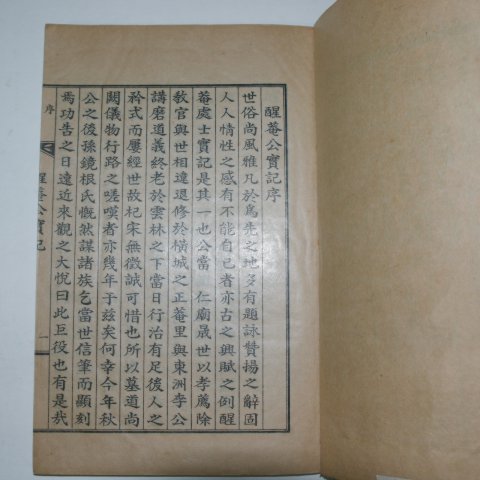 醒菴公實記序
世俗尚風雅凡於爲先之地多有題詠贊揚之辭固
人人情性之感有不能自已者亦古之興賦之例醒
菴處士實記是其一也公當 仁廟晟世以孝薦除
教官與世相違退修於橫城之正菴里與東洲李公
講磨道義終老於雲林之下當日行治有足後人之
矜式而屢經世故杞宋無徵誠可惜也所以墓道尚
闕儀物行路之嗟嘆者亦幾年于玆矣何幸今年秋
公之後孫鏡根氏慨然謀諸族乞當世信筆而顯刻
焉功告之日遠近來觀之大悅曰此巨役也有是哉
序
醒菴公實記
一